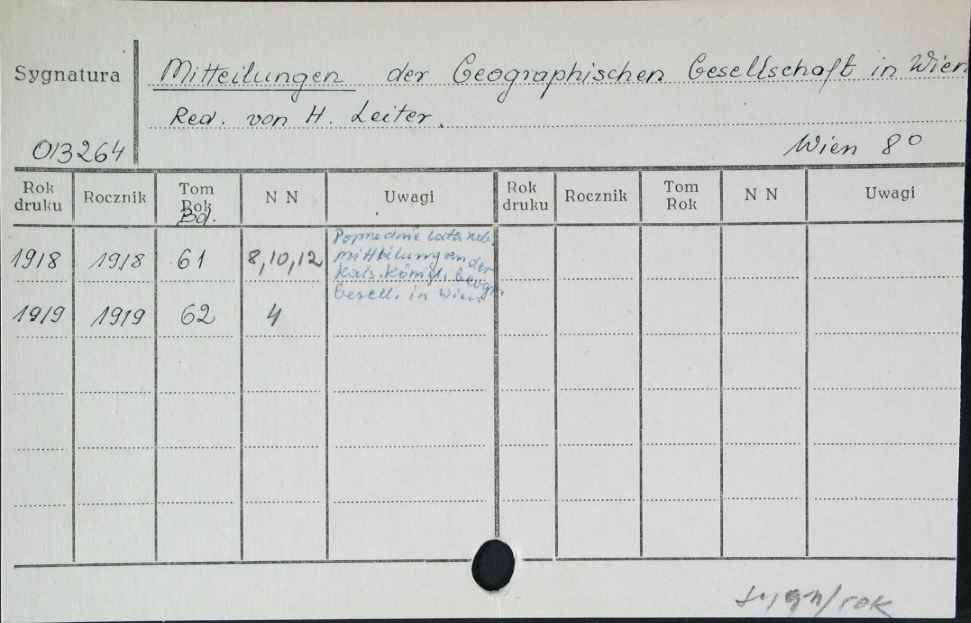 Sygnatura
Mitteilungen der Geographischen Gesellschaft in Wien
Red. von H. Leiter.
013264
Wien 8°
Rok druku Rocznik Tom Rok Bd. N N Uwagi Rok druku Rocznik Tom Rok N N Uwagi
1918 1918 61 8,10,12
Poprzednie lata
Mitteilungen der
Kais. Königl. Geogr.
Gesell. in Wien
1919 1919 62 4
sygn/rok